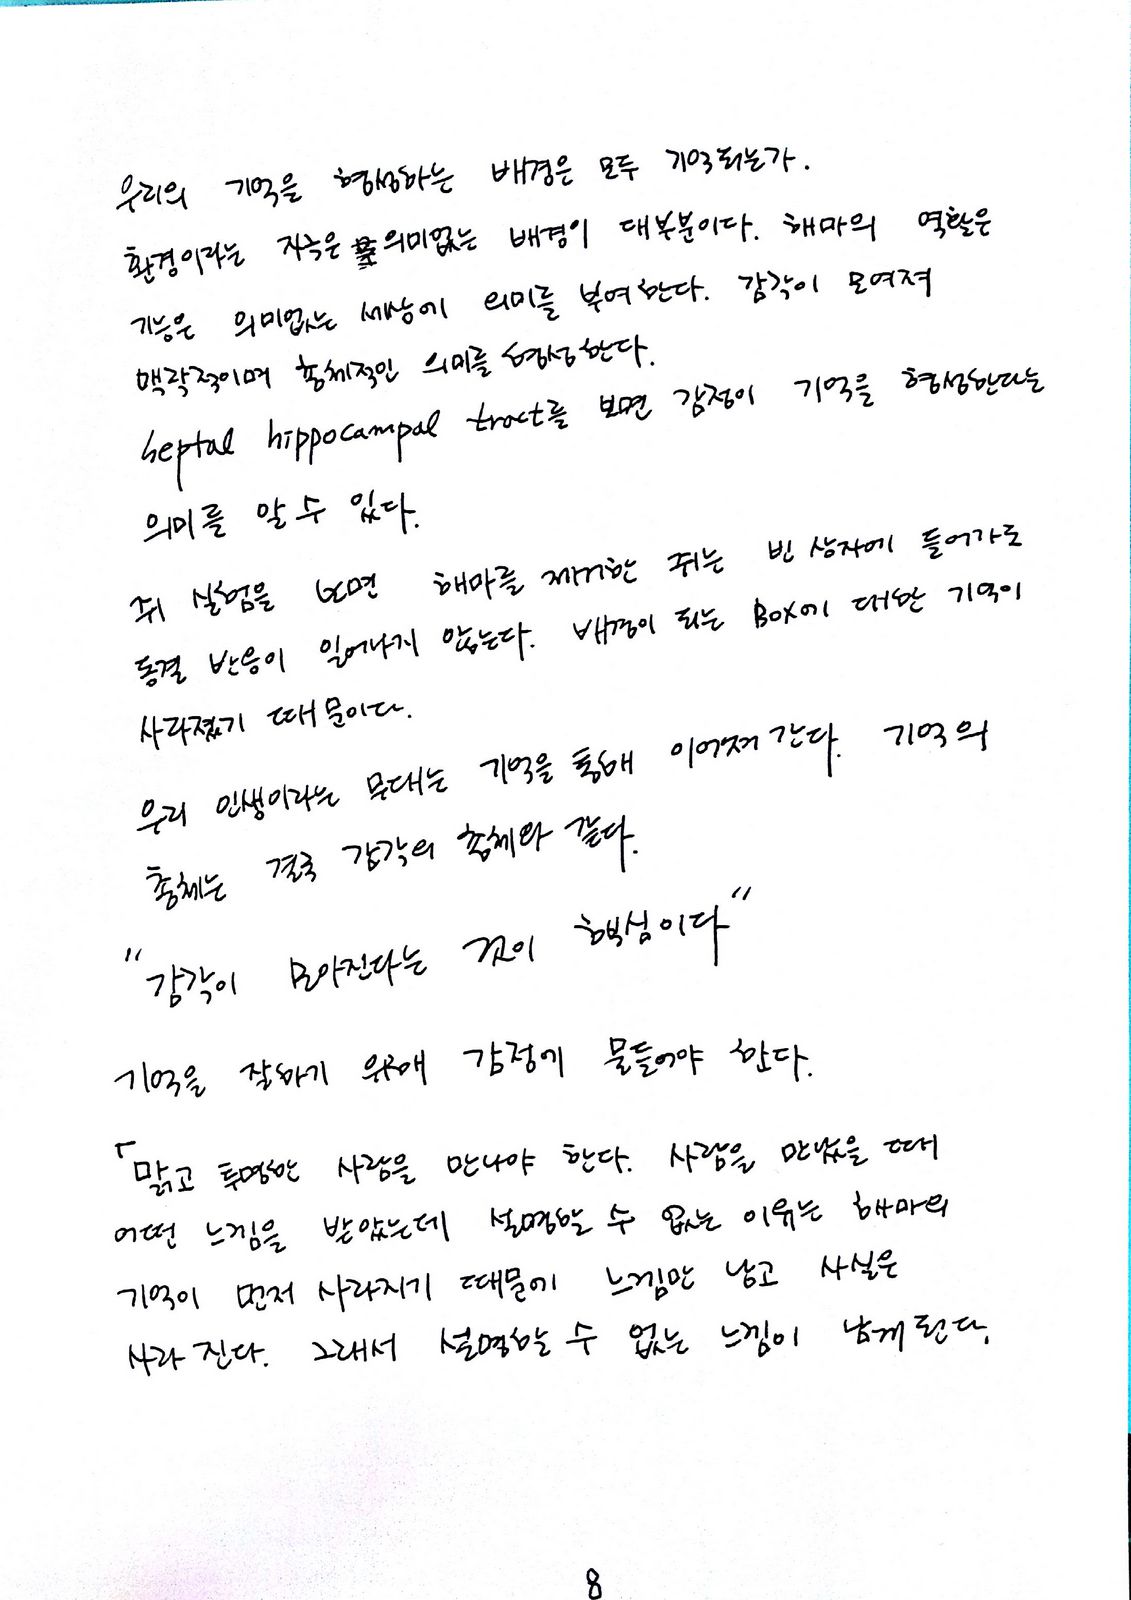 우리의 기억을 형성하는 배경은 모두 기억되는가.
환경이라는 자극은 의미없는 배경이 대부분이다. 해마의 역할은
기능은 의미없는 세상에 의미를 부여한다. 감각이 모여져
맥락적이며 총체적인 의미를 형성한다.
septal hippocampal tract를 보면 감정이 기억을 형성한다는
의미를 알 수 있다.
쥐 실험을 보면 해마를 제거한 쥐는 빈 상자에 들어가도
동결 반응이 일어나지 않는다. 배경이 되는 Box에 대한 기억이
사라졌기 때문이다.
우리 인생이라는 무대는 기억을 통해 이어져 간다. 기억의
총체는 결국 감각의 총체와 같다.
"감각이 모아진다는 것이 핵심이다"
기억을 잘하기 위해 감정에 물들어야 한다.
「맑고 투명한 사람을 만나야 한다. 사람을 만났을 때
어떤 느낌을 받았는데 설명할 수 없는 이유는 해마의
기억이 먼저 사라지기 때문에 느낌만 남고 사실은
사라진다. 그래서 설명할 수 없는 느낌이 남게 된다.
8